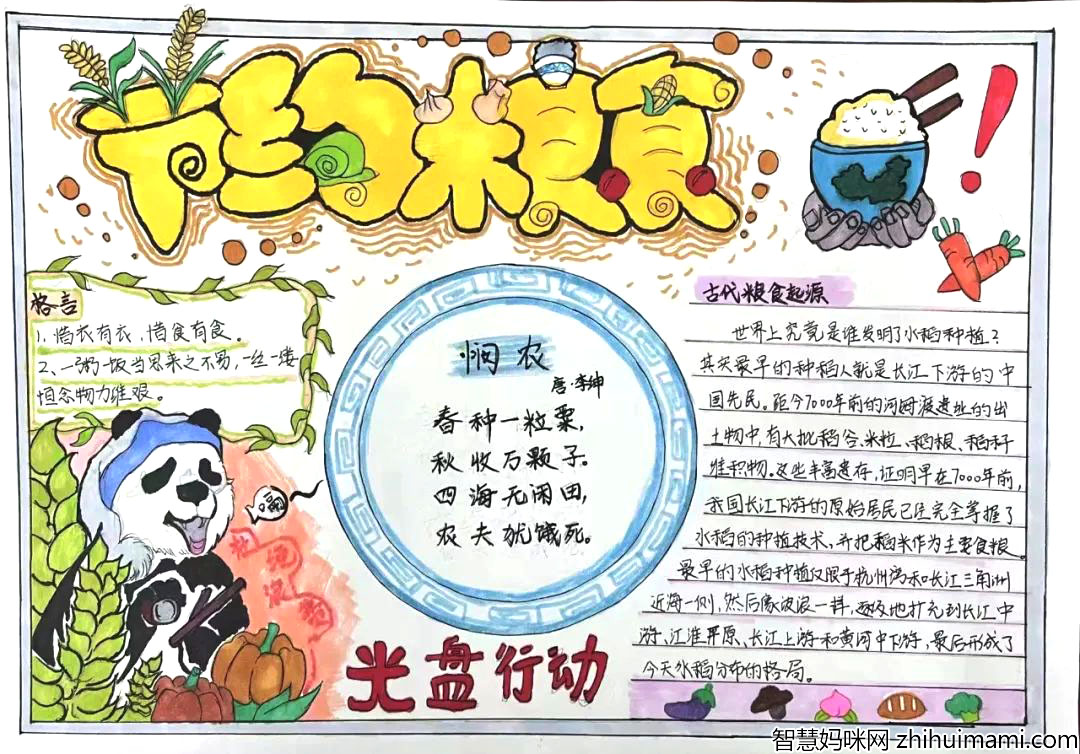 节约粮食
格言
1、惜衣有衣，惜食有食。
2、一粥一饭当思来之不易，一丝一缕
恒念物力维艰。
悯农
唐·李绅
春种一粒粟，
秋收万颗子。
四海无闲田，
农夫犹饿死。
光盘行动
古代粮食起源
世界上究竟是谁发明了水稻种植？
其实最早的种稻人就是长江下游的中
国先民。距今7000年前的河姆渡遗址的出
土物中，有大批稻谷、米粒、稻根、稻秆
堆积物。这些丰富遗存，证明早在7000年前，
我国长江下游的原始居民已经完全掌握了
水稻的种植技术，并把稻米作为主要食粮。
最早的水稻种植仅限于杭州湾和长江三角洲
近海一侧，然后像波浪一样，逐级地扩充到长江中
游、江淮平原、长江上游和黄河中下游，最后形成了
今天水稻分布的格局。
智慧妈咪网-zhihuimami.com